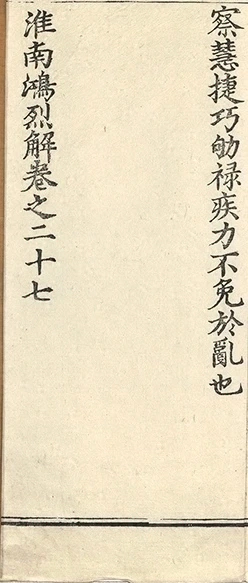 察慧捷巧劬禄疾力不免於亂也
淮南鴻烈解卷之二十七